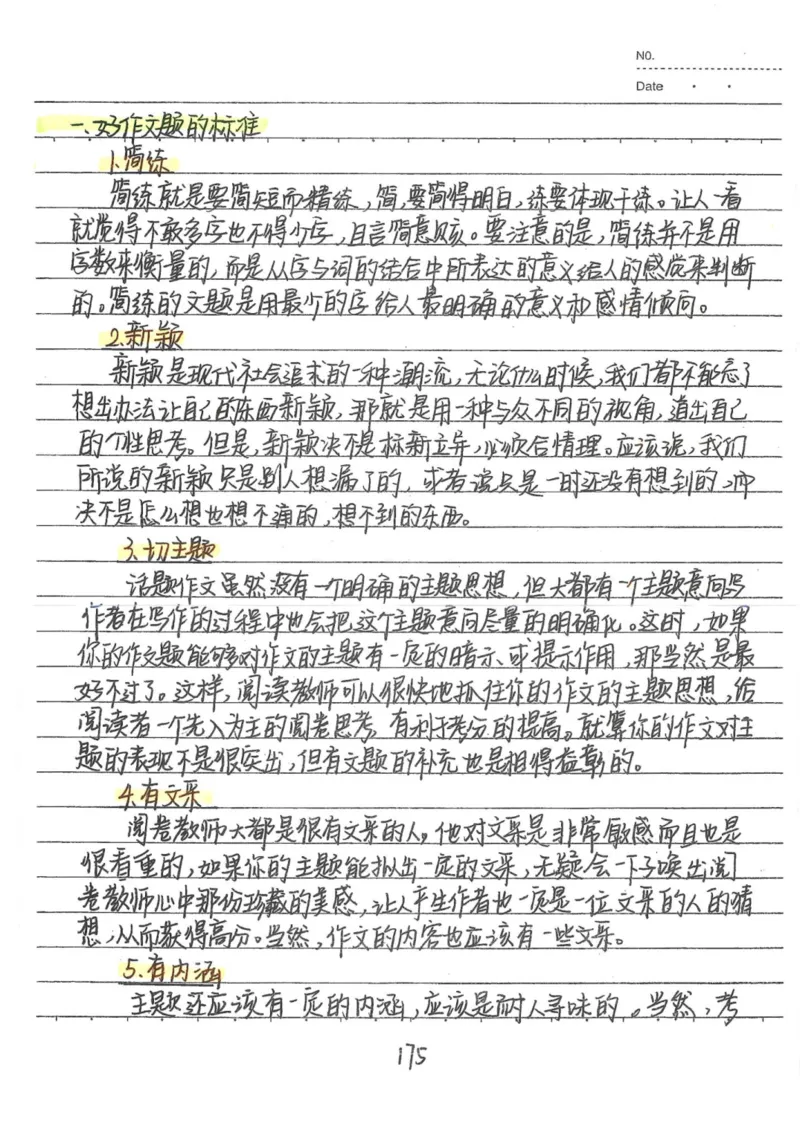 NO.
Date
一、好作文题的标准
1.简练
简练就是要简短而精练，简，要简得明白，练要体现干练。让人一看
就觉得不敢多字也不得少字，且言简意赅。要注意的是，简练并不是用
字数来衡量的，而是从字与词的结合中所表达的意义给人的感觉来判断
的。简练的文题是用最少的字给人最明确的意义和感情倾向。
2.新颖
新颖是现代社会追求的一种潮流，无论什么时候，我们都不能忘了
想出办法让自己的东西新颖，那就是用一种与众不同的视角，道出自己
的个性思考。但是，新颖决不是标新立异，必须合情理。应该说，我们
所说的新颖只是别人想漏了的，或者说只是一时还没有想到的，
决不是怎么想也想不通的，想不到的东西。
3.切主题
话题作文虽然没有一个明确的主题思想，但大都有一个主题意向写
作者在写作的过程中也会把这个主题意向尽量的明确化。这时，如果
你的作文题能够对作文的主题有一定的暗示、或提示作用，那当然是最
好不过了。这样，阅读教师可以很快地抓住你的作文的主题思想，给
阅读者一个先入为主的阅卷思考，有利于考分的提高。就算你的作文对主
题的表现不是很突出，但有文题的补充也是相得益彰的。
4.有文采
阅卷教师大都是很有文采的人，他对文采是非常敏感而且也是
很看重的，如果你的主题能拟出一定的文采，无疑会一下子唤出阅
卷教师心中那份珍藏的美感，让人产生作者也一定是一位文采的人的猜
想，从而获得高分。当然，作文的内容也应该有一些文采。
5.有内涵
主题还应该有一定的内涵，应该是耐人寻味的。当然，考
175